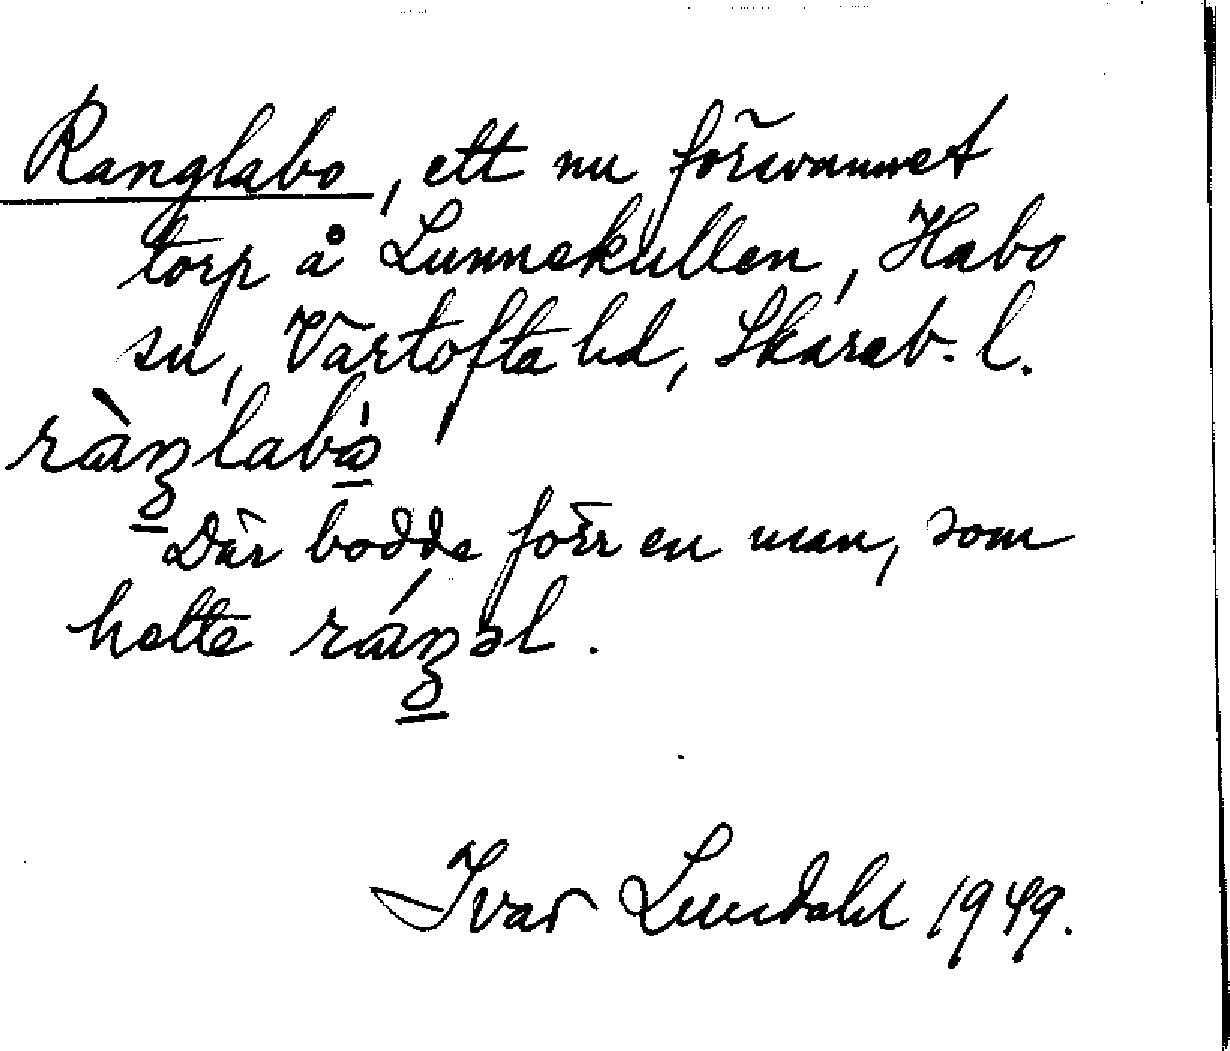 Ranglabo, ett nu försvunnet
torp å Lunnekullen, Habo
sn, Vartofta hd, Skarab. l.
ràŋlabò
Där bodde förr en man, som
hette ráŋəl.
Ivar Lundahl 1949.